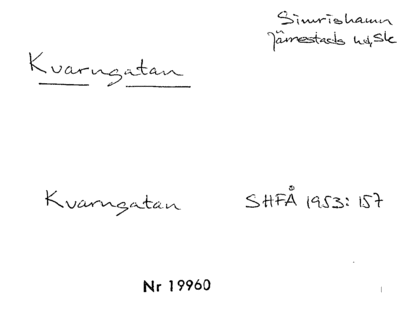 Simrishamn
Järrestads hd, Sk
Kvarngatan
Kvarngatan SHFÅ 1953: 157
Nr 19960